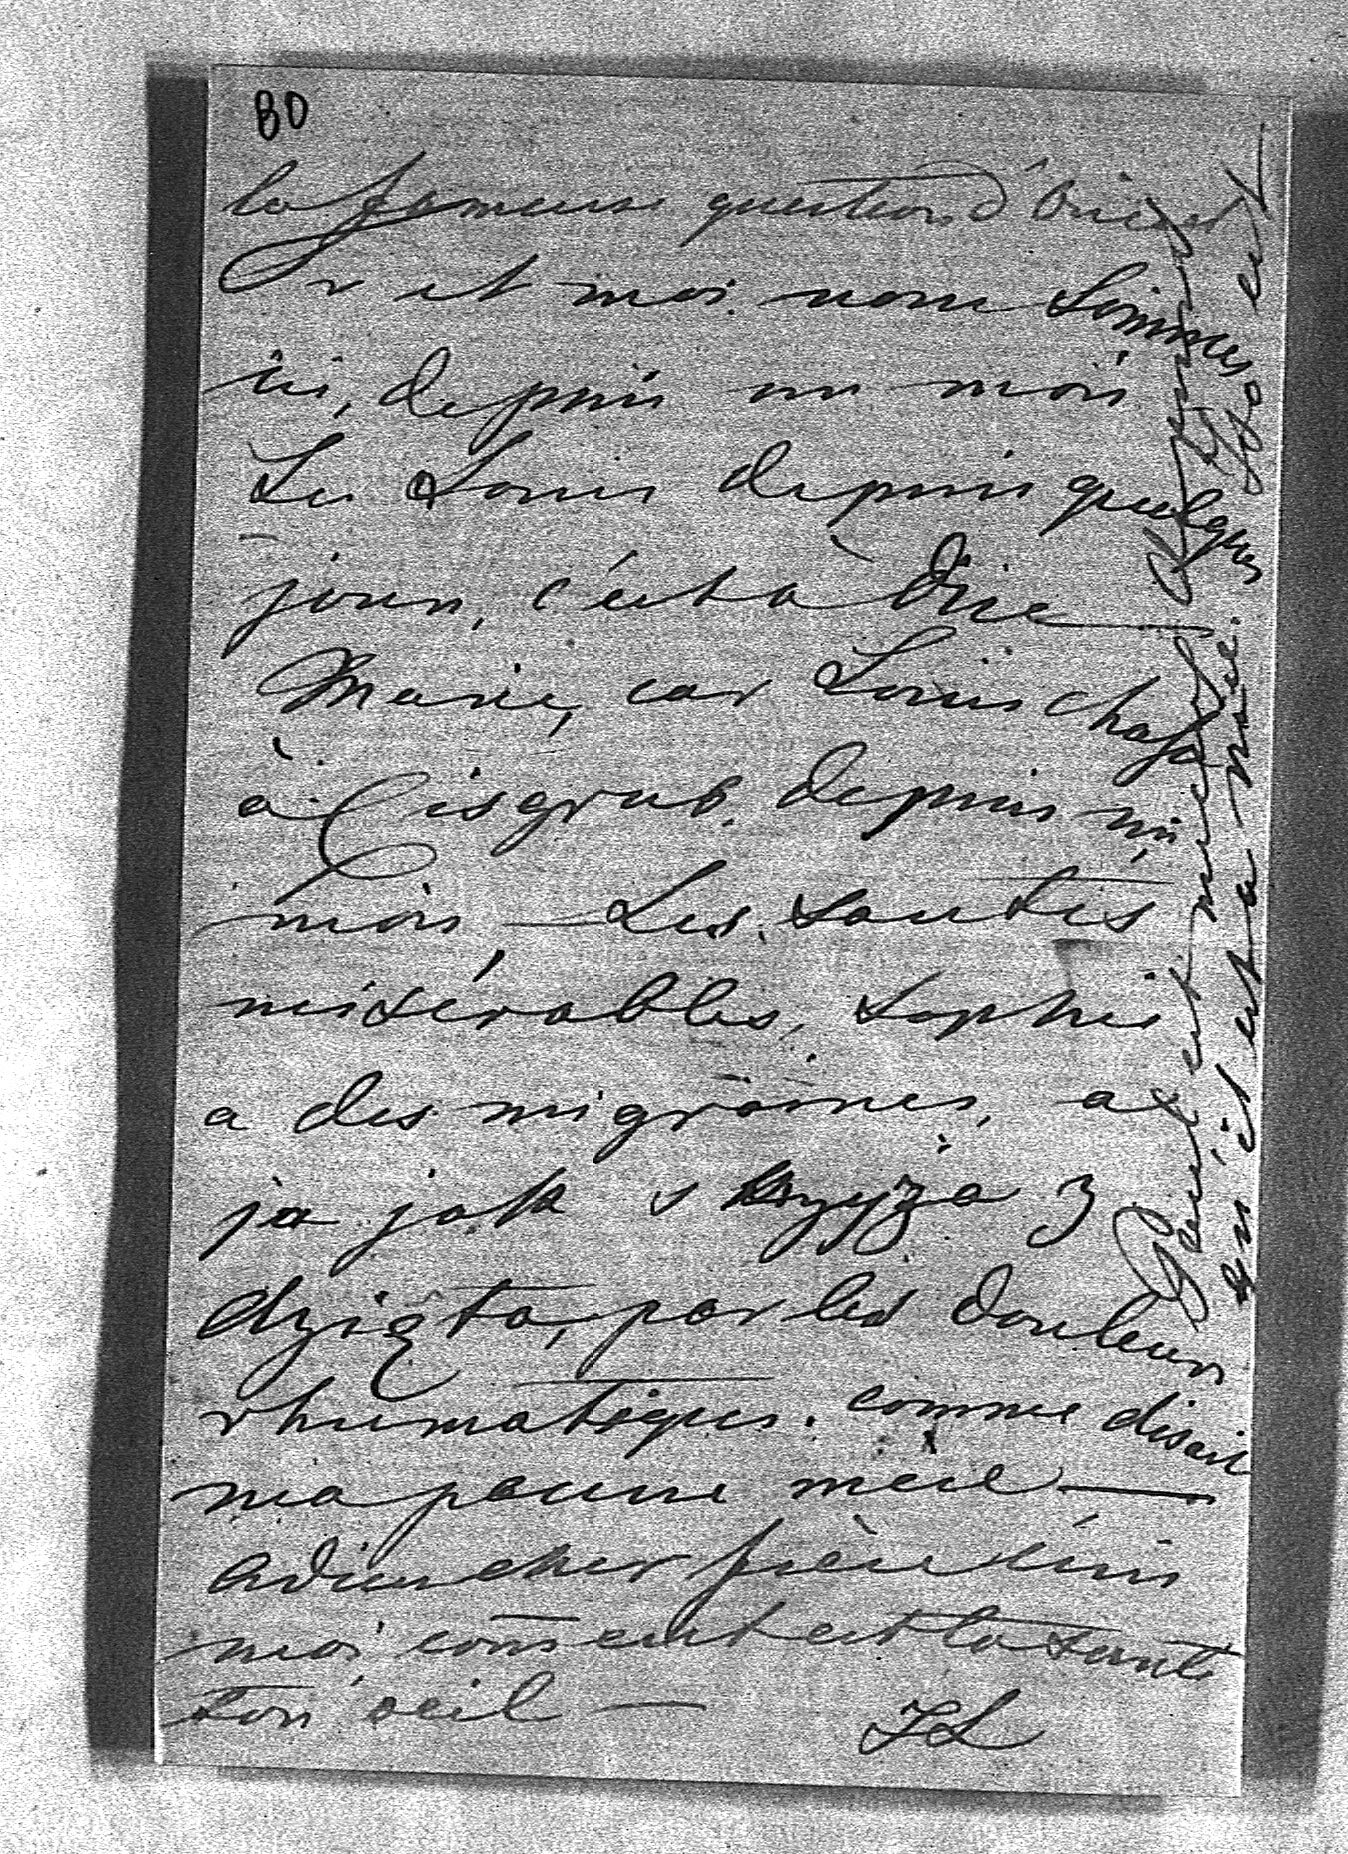 80
la fameuse question d'Orient
Pr et moi nous sommes
ici, depuis un mois
Les Louis depuis quelques
jours, c'est à dire
Marie, car Louis chasse
à Eisgrub depuis un
mois, — Les santés
misérables, Sophie
a des migraines, a
ja jak skrzyża z
dzięta, par les douleurs
rhumatiques. comme disait
ma pauvre mère —
adieu cher frère écris
moi comment est ta santé
ton oeil —
est mieux
qu'il est à